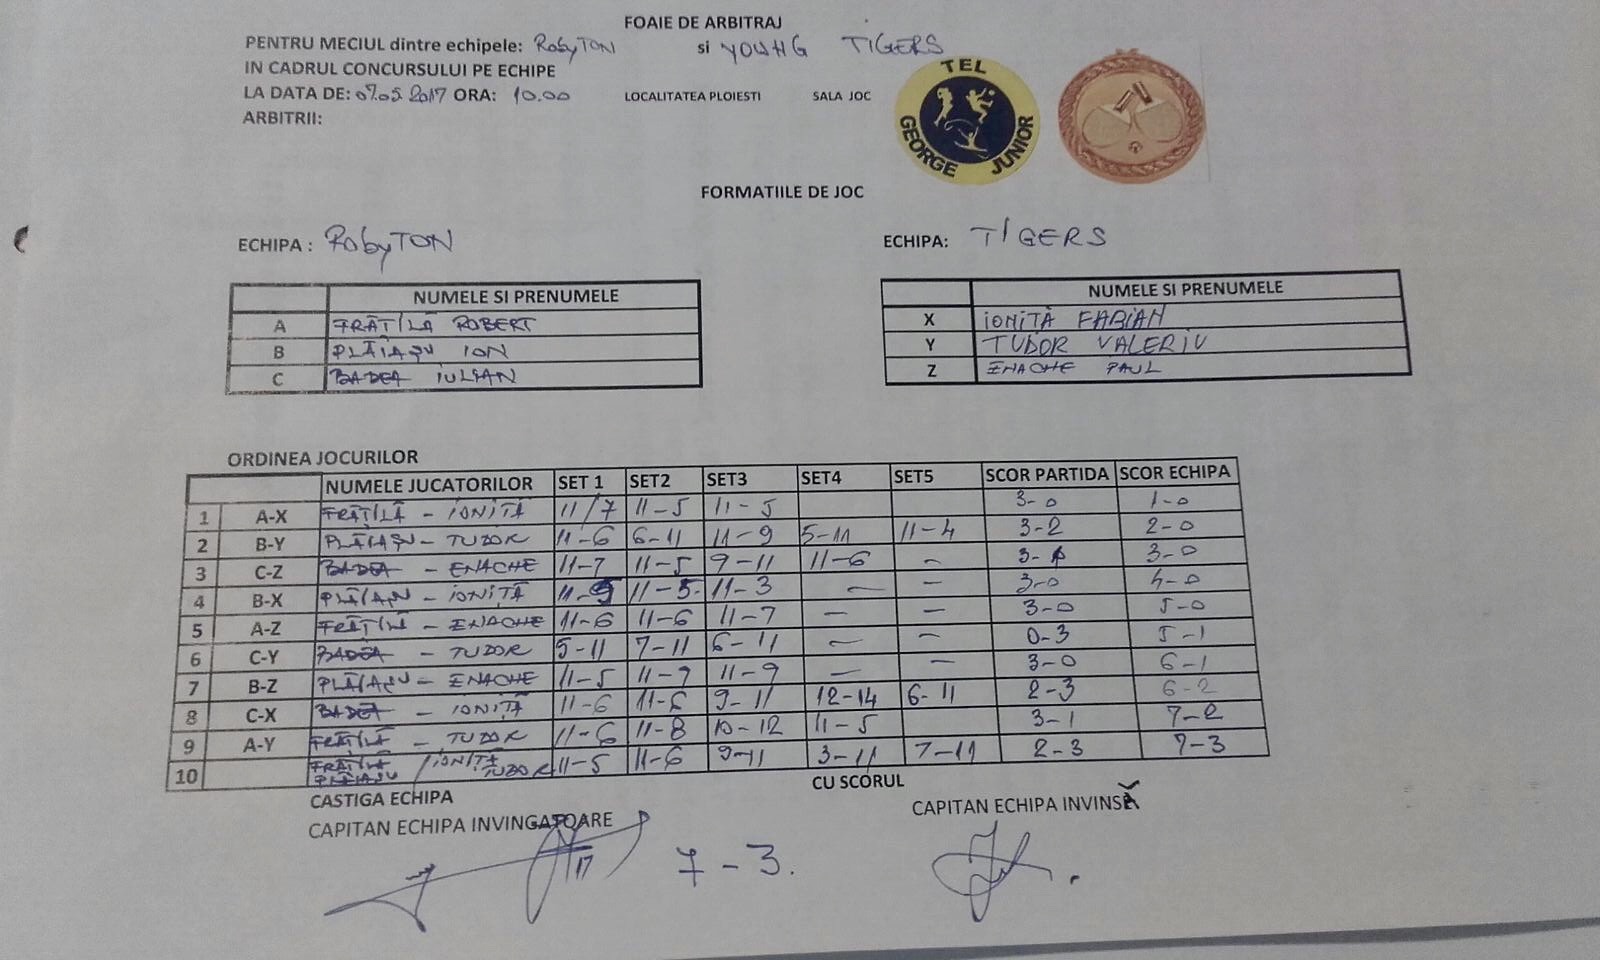 FOAIE DE ARBITRAJ
PENTRU MECIUL dintre echipele: RobyTON si YOUNG TIGERS
IN CADRUL CONCURSULUI PE ECHIPE
LA DATA DE: 07.05 2017 ORA: 10.00 LOCALITATEA PLOIESTI SALA JOC
ARBITRII:
TEL GEORGE JUNIOR
FORMATIILE DE JOC
ECHIPA : RobyTON ECHIPA: TIGERS
NUMELE SI PRENUMELE NUMELE SI PRENUMELE
A FRĂȚILĂ ROBERT X IONIȚĂ FABIAN
B PLĂIAȘU ION Y TUDOR VALERIU
C BADEA IULIAN Z ENACHE PAUL
ORDINEA JOCURILOR
NUMELE JUCATORILOR SET 1 SET2 SET3 SET4 SET5 SCOR PARTIDA SCOR ECHIPA
1 A-X FRĂȚILĂ - IONIȚĂ 11/7 11-5 11-5 3-0 1-0
2 B-Y PLĂIAȘU - TUDOR 11-6 6-11 11-9 5-11 11-4 3-2 2-0
3 C-Z BADEA - ENACHE 11-7 11-5 9-11 11-6 - 3-1 3-0
4 B-X PLĂIAȘU - IONIȚĂ 11-9 11-5 11-3 - - 3-0 4-0
5 A-Z FRĂȚILĂ - ENACHE 11-6 11-6 11-7 - - 3-0 5-0
6 C-Y BADEA - TUDOR 5-11 7-11 6-11 - - 0-3 5-1
7 B-Z PLĂIAȘU - ENACHE 11-5 11-7 11-9 - - 3-0 6-1
8 C-X BADEA - IONIȚĂ 11-6 11-6 9-11 12-14 6-11 2-3 6-2
9 A-Y FRĂȚILĂ - TUDOR 11-6 11-8 10-12 11-5 3-1 7-2
10 FRĂȚILĂ PLĂIAȘU / IONIȚĂ TUDOR 11-5 11-6 9-11 3-11 7-11 2-3 7-3
CASTIGA ECHIPA CU SCORUL
CAPITAN ECHIPA INVINGATOARE CAPITAN ECHIPA INVINSĂ
7-3.